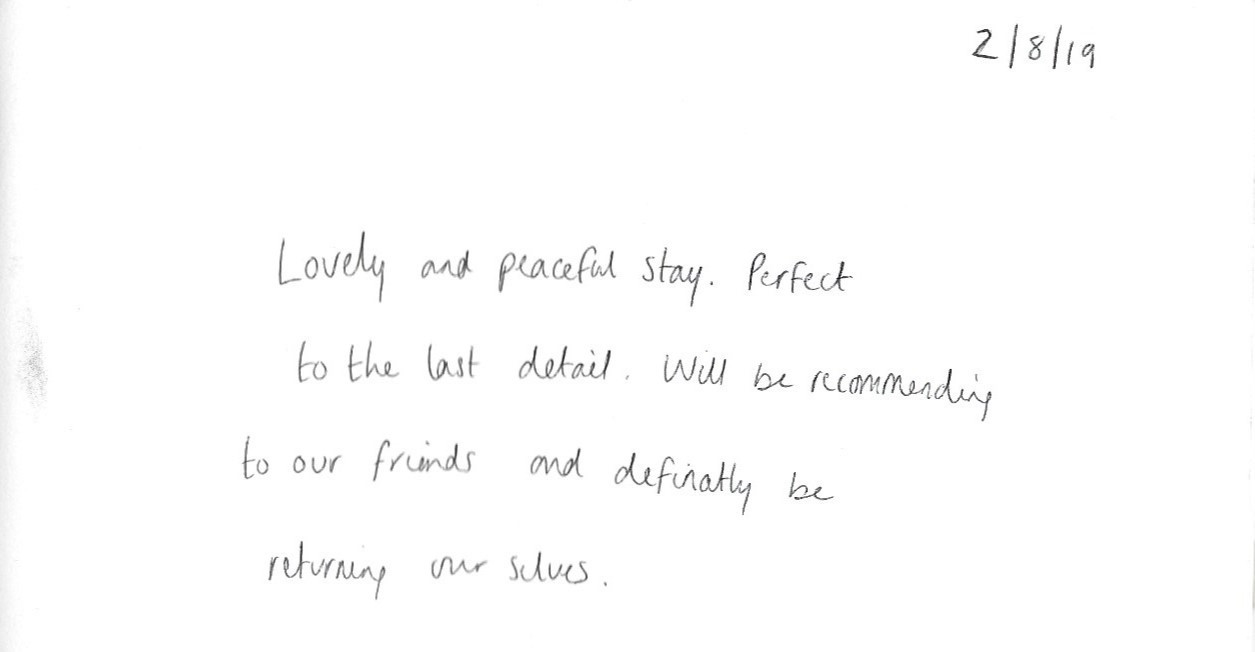 2/8/19
Lovely and peaceful stay. Perfect
to the last detail. Will be recommending
to our friends and definatly be
returning our selves.